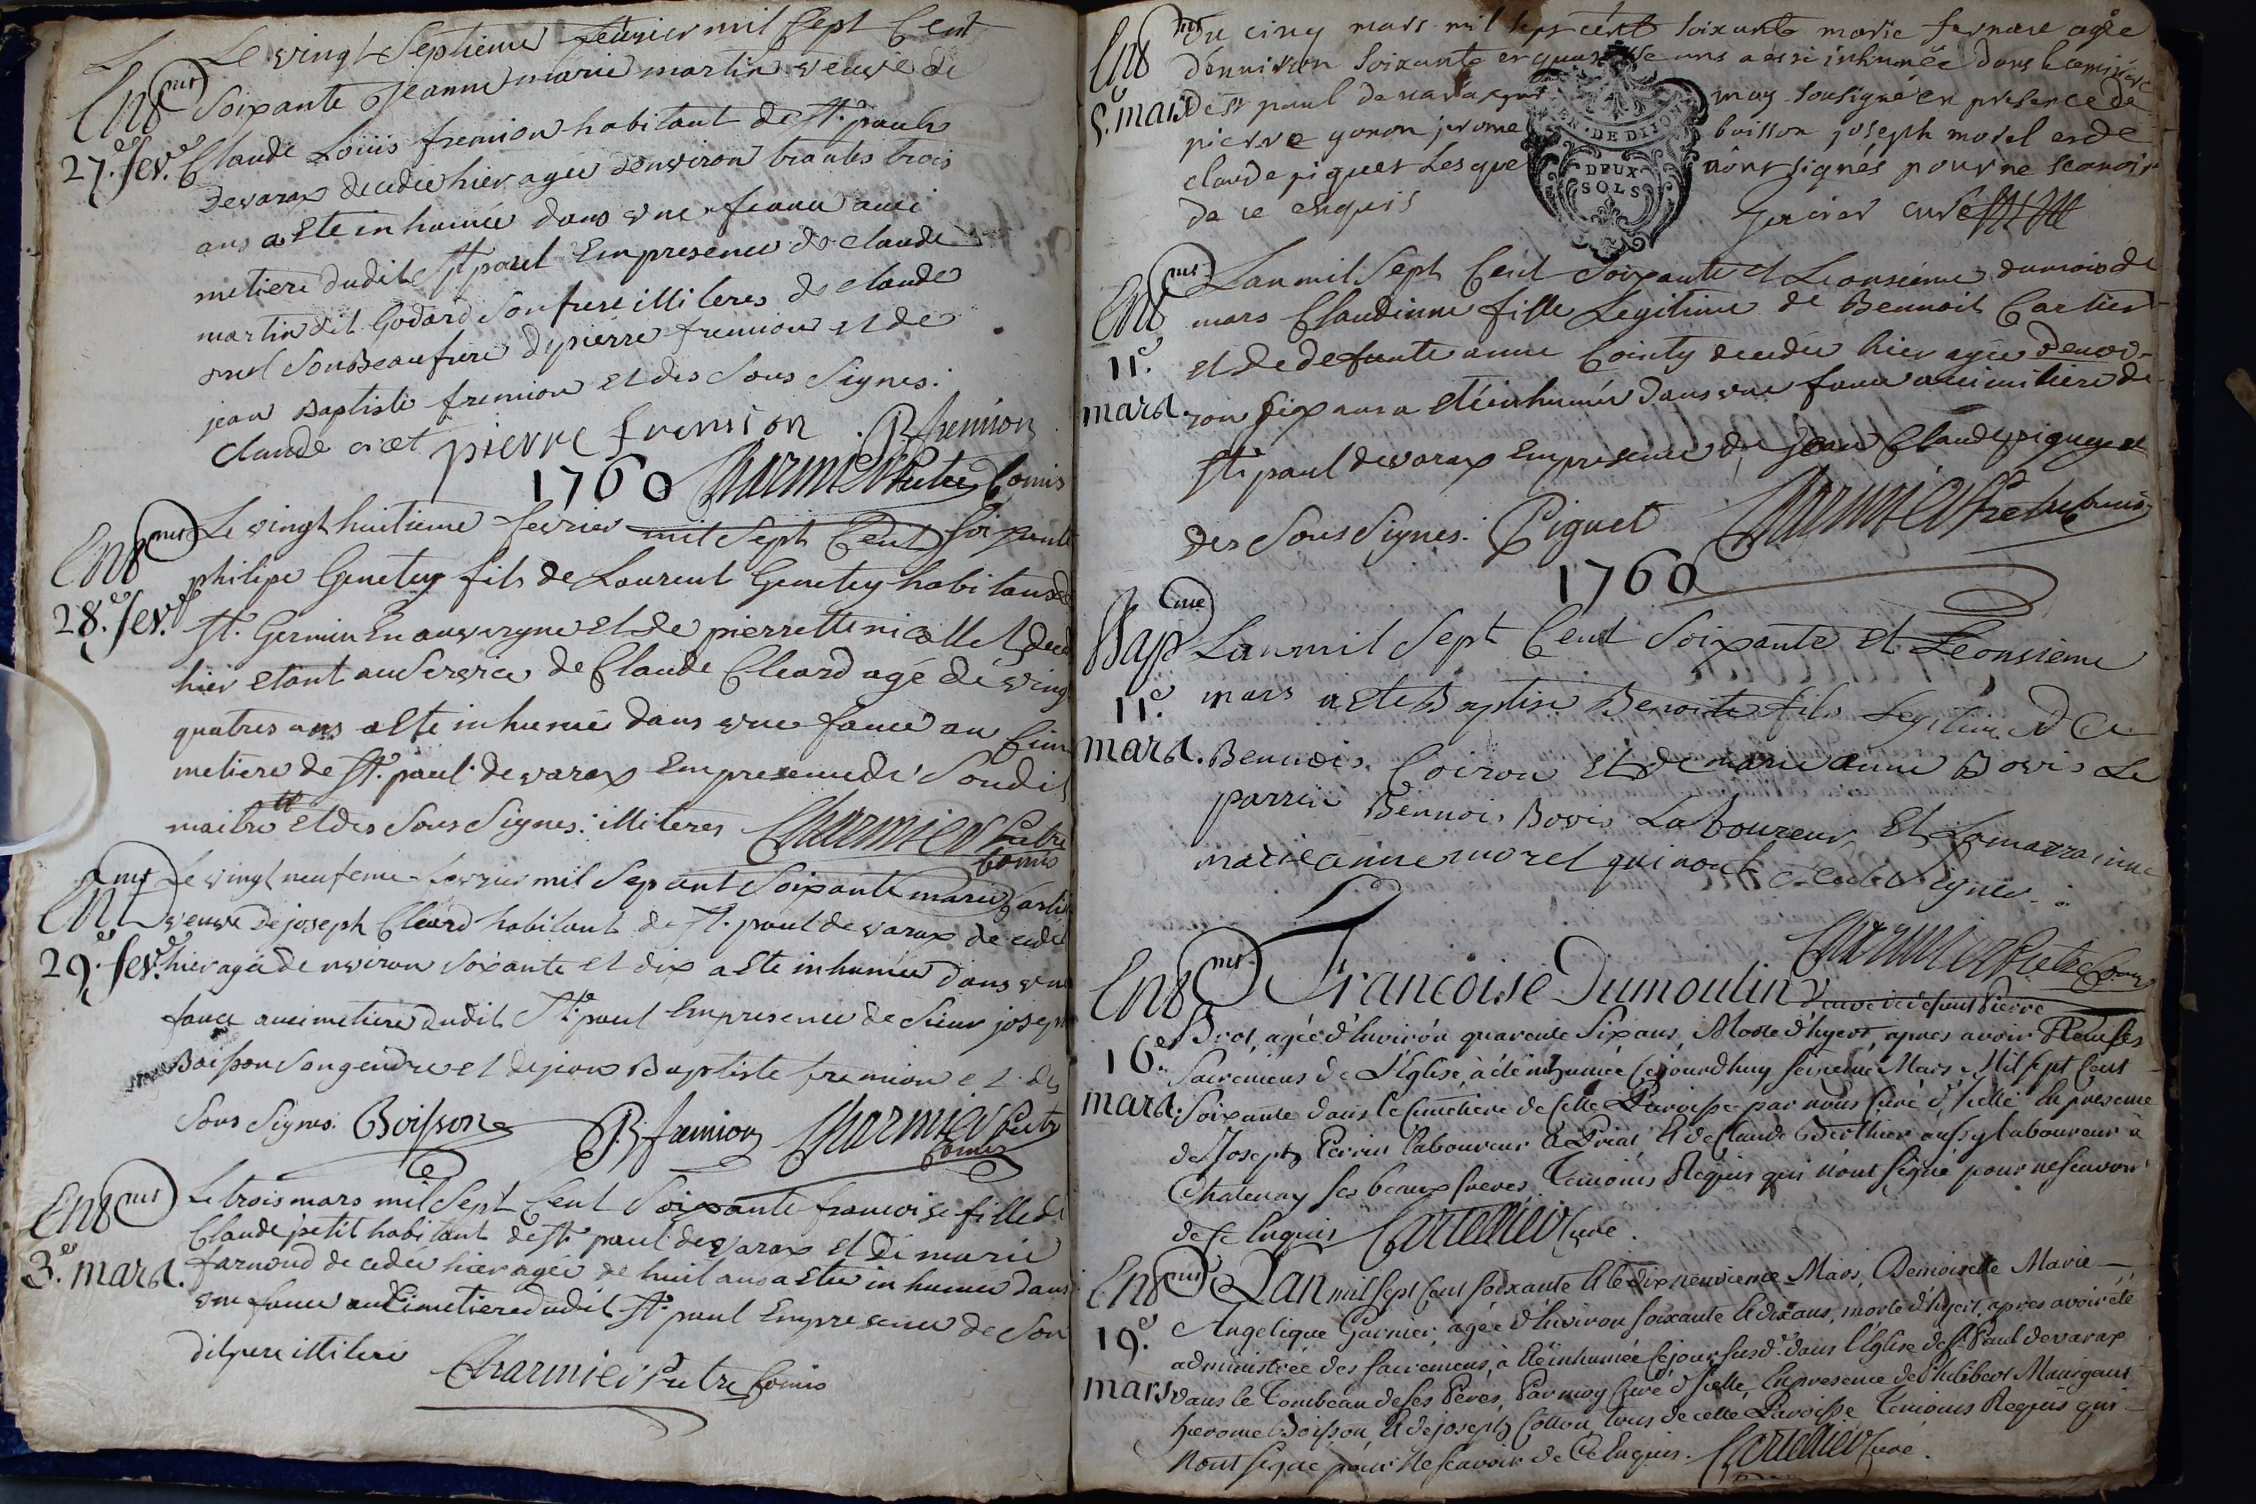 Le vingt Septieme fevrier mil Sept Cent
Ent mt Soixante Jeanne marie martin veuve de
27.e fev.er Claude Louis fremion habitant de St. paul
devarax decedee hier agée denviron trantes trois
ans a Ete inhumée dans une fausse au ci
metiere dudit St paul Empresence de claude
martin dit Godard Son frere illiteres de claude
Son Beaufrere de pierre fremion et de
jean Baptiste fremion et des Sous Signes.
Claude pierre fremion JB fremion
1760 Charmier Pretre Comis
Ent mt Le vingt huitieme fevrier mil Sept Cent Soixante
philipe Genetey fils de Laurent Genetey habitans de
28.e fev.er St. Germin En auvergne et de pierrette
hier etant au Service de Claude Cleard agé de vingt
quatres ans a Ete inhumé dans une fausse au Cim
metiere de St. paul devarax Empresence de Soudit
maitre et des Sous Signes illiteres Charmier Pretre
Comis
Ent mt Le vingt neufeme fevrier mil Sept cent Soixante marie Cartier
veuve de joseph Cleard habitant de St. paul de varax decedée
29.e fev.er hier agée de nviron Soixante et dix a Ete inhumée dans une
fausse au cimetiere dudit St. paul Empresence de Sieur joseph
Boisson Son gendre et de jean Baptiste fremion et des
Sous Signes. Boisson JB fremion Charmier Pretre
Comis
Ent mt Le trois mars mil Sept Cent Soixante francoise fille de
Claude petit habitant de St. paul de varax et de marie
3.e mars. farnoud decedée hier agée de huit ans a Ete inhumée dans
une fausse au Cimetiere dudit St. paul Empresence de Son
dit pere illitere
Charmier Pretre Comis
Ent mt du cinq mars mil sept cent soixante marie fernare agée
d'enniron soixante et quatorse ans a esté inhumée dans le cemitiere
5.e mars de st paul de varax par moy sousigné en presence de
pierre gonon jerome boisson joseph morel et de
claude piguet Lesque n'ont signés pour ne scavoir
de ce enquis curé
GEN. DE DIJON
DEUX
SOLS
Ent mt Lan mil Sept Cent Soixante et Leonsieme du mois de
mars Claudinne fille Legitime de Bennoit Cartier
11.e et de defeunte anne Cointy decedée hier agée denvi
mars. ron Six ans a eté inhumée dans une fausse au cimitiere de
St. paul devarax Empresence de Jean Claude piguet et
des Sous Signes. Piguet Charmier Pretre Comis
1760
Bap tme Lan mil Sept Cent Soixante et Leonsieme
11.e mars a ete Baptisé Benoite fils Legitime de
mars. Bennois Coiron et de marie anne Bovis Le
parrein Bennois Bovis Laboureur, Et La marrainne
marie anne morel qui nont Signer.
Charmier Pretre Comis
Ent mt Francoise Dumoulin veuve de defunt Pierre
Brot, agée d'Environ quarente Six ans, Morte d'hyert, apres avoir Reçu Les
16.e Sacremens de L'Eglise, à été inhumée cejourdhuy seizieme Mars Mil sept Cent
mars. Soixante dans le Cimetiere de Cette Paroisse par nous Curé d'Icelle En presence
de Joseph Perrin laboureur à Priai Et de Claude Berthier aussy laboureur à
Chatenay ses beaux freres, Temoins Requis qui n'ont signé pour ne scavoir
de Ce Enquis Cartellier Curé.
Ent mt L'an mil sept Cent soixante Et le dix neuvieme Mars, Demoiselle Marie
Angelique Garnier, agée d'Environ soixante Et dix ans, morte d'hyert, apres avoir été
19.e administrée des sacremens, à été inhumée cejour susd.t dans l'Eglise de St. Paul devarax
mars dans le Tombeau de ses Peres, Par moy Curé d'Icelle, En presence de Philibert
hierome Boisson, Et de joseph Cottou, tous de cette Paroisse Temoins Requis qui
n'ont signé pour Ne scavoir de Ce Enquis. Cartellier Curé.